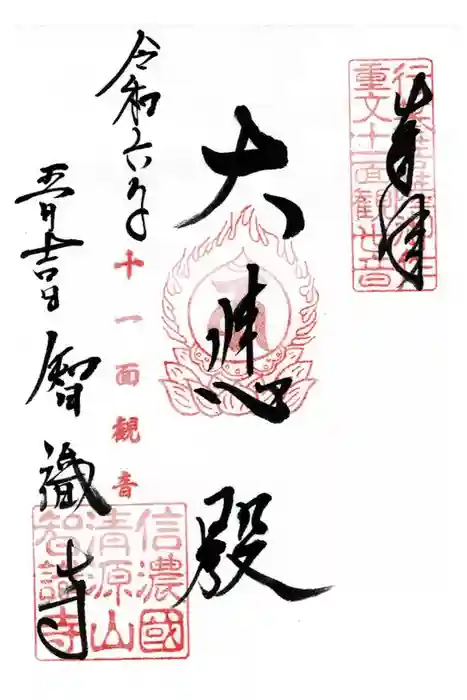 奉拝
重文十一面観世音
大悲殿
令和六年
五月吉日
十一面観音
智識寺
信濃國
清源山
智識寺